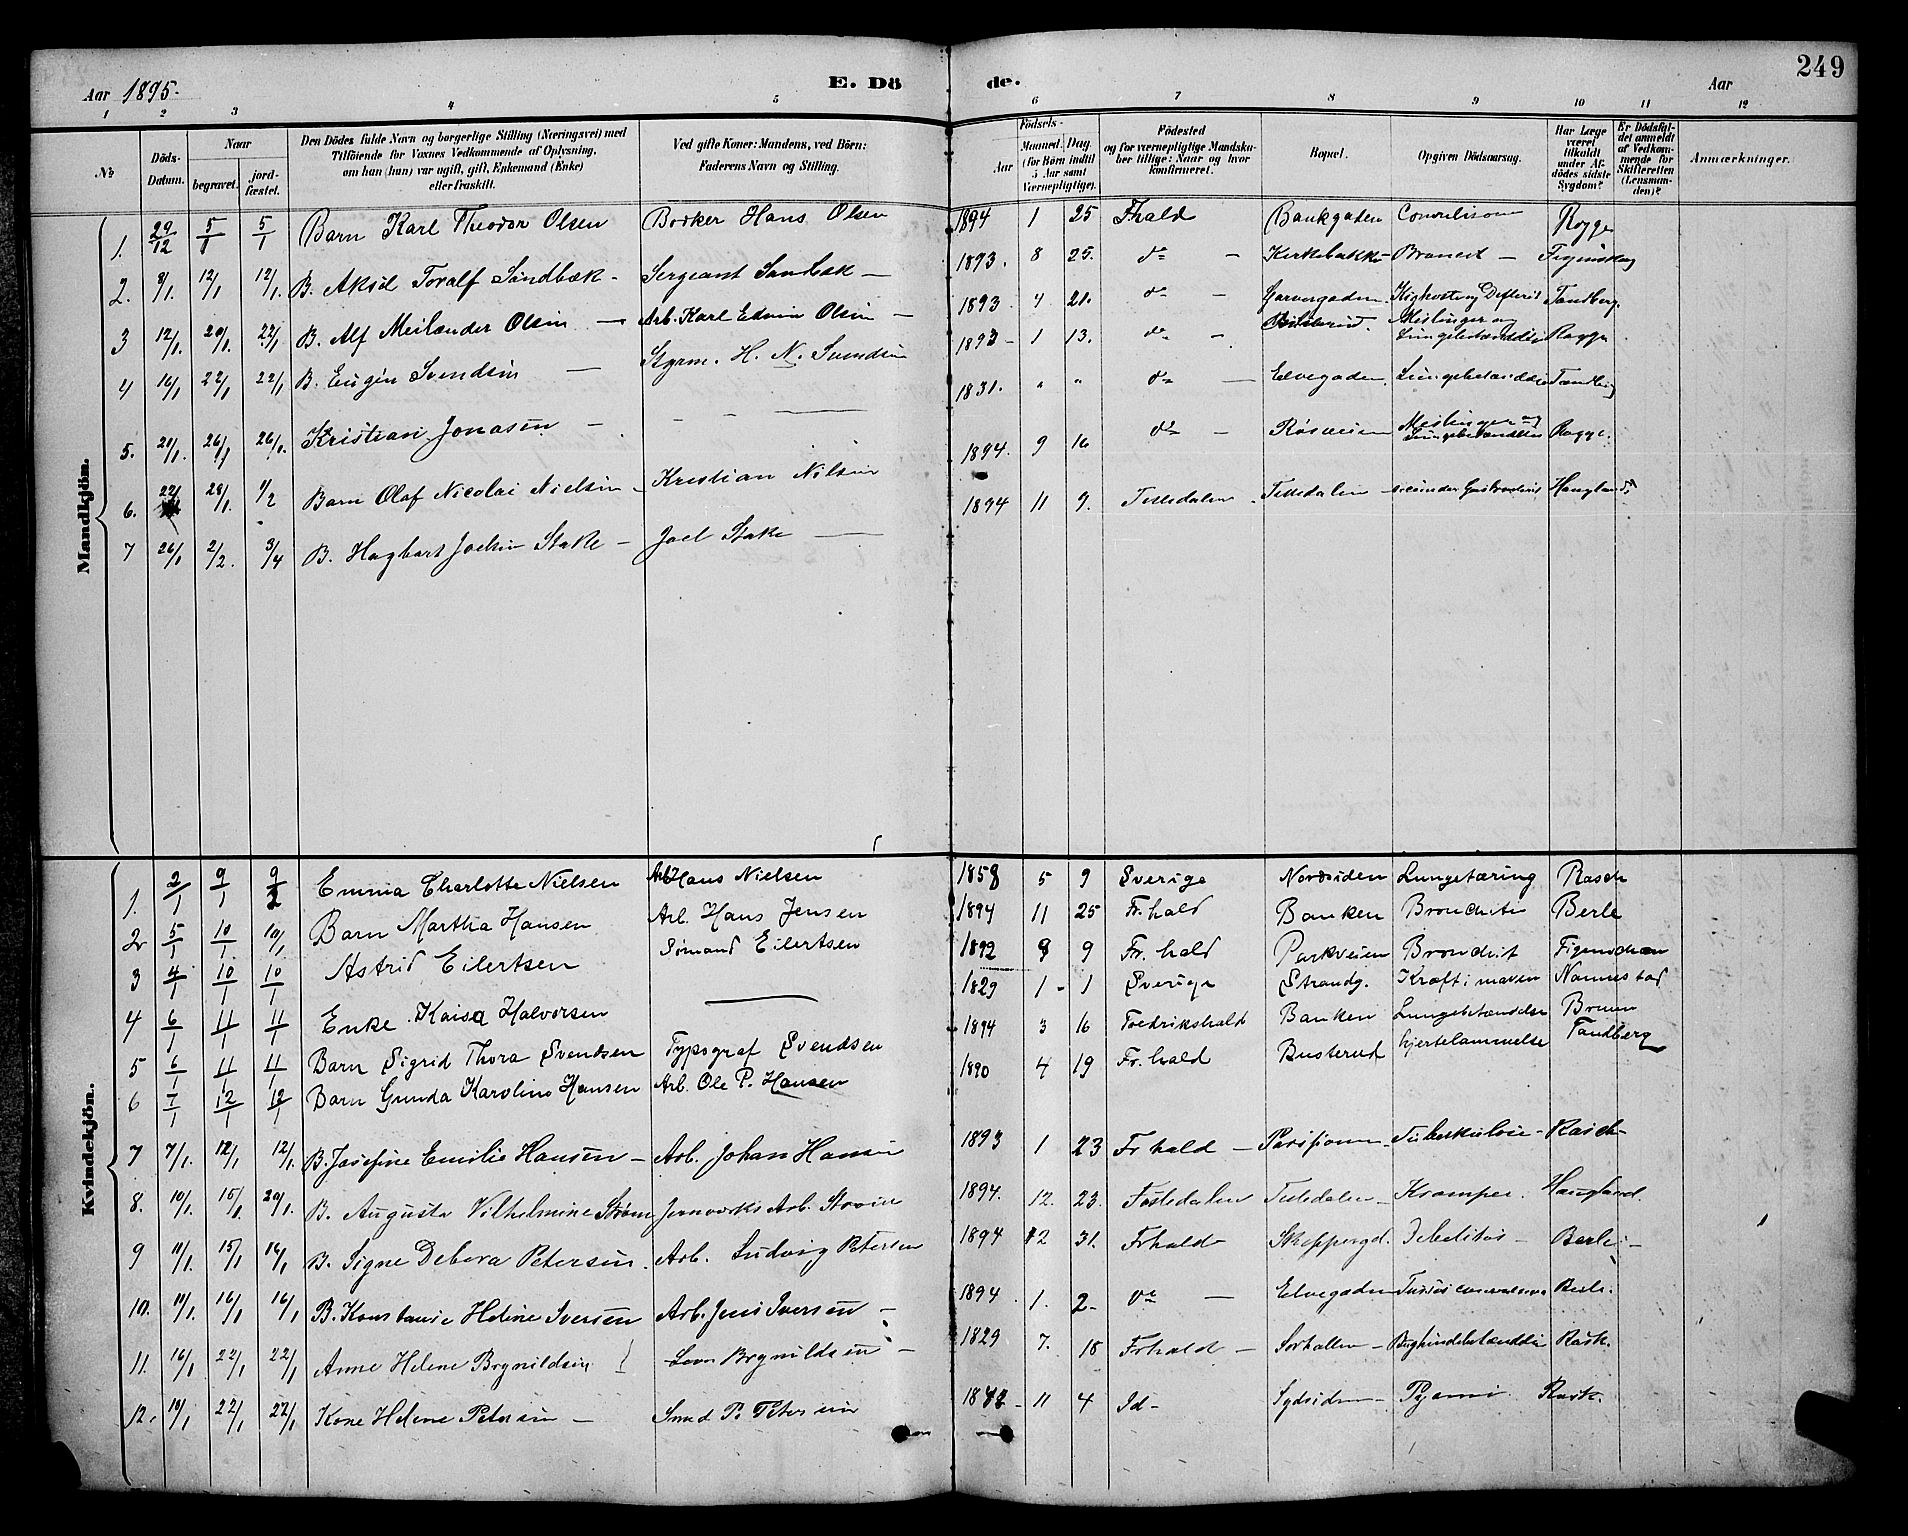 249
Aar 1895. E. Dö de. Aar
1 2 3 4 5 6 7 8 9 10 11 12
No Döds-Datum. Naar begravet. jord-fæstet. Den Dödes fulde Navn og borgerlige Stilling (Næringsvei) med Tilföiende for Voxnes Vedkommende af Oplysning, om han (hun) var ugift, gift, Enkemand (Enke) eller fraskilt. Ved gifte Koner: Mandens, ved Börn: Faderens Navn og Stilling. Födsels- Aar Maaned. Dag. (for Börn indtil 5 Aar samt Værnepligtige). Födested og for værnepligtige Mandskaber tillige: Naar og hvor konfirmeret. Bopæl. Opgiven Dödsaarsag. Har Læge været tilkaldt under Afdödes sidste Sygdom? Er Dödsfaldet anmeldt af Vedkommende for Skifteretten (Lensmanden)? Anmærkninger.
Mandkjön.
1. 29/12 5/1 5/1 Barn Karl Theodor Olsen Hans Olsen 1894 1 25 Fhald Bankgaden Rygge
2. 8/1. 12/1 12/1. B. Aksel Toralf Sandbæk - Sergeant Sandbæk - 1893. 8 25. do -
3 12/1. 20/1. 22/1 B. Alf Meilænder Olsen - Arb. Karl Edvin Olsen - 1893 4 21. do - Garvergaden Tandberg.
4 16/1 22/1 22/1 B. Eugén Svendsen - Styrm. H. N. Svendsen 1893 - 1 13. do - Meslinger og Lungebetændelse Rygge
5. 21/1. 26/1 26/1. Kristian Jonasen - - - 1831. " " do - Elvegaden Lungebetændelse Tandberg
6. 22/1 28/1. 1/2 Barn Olaf Nicolai Nielsen - Kristian Nilsen 1894. 9 16 do - Røsveien Meslinger og Lungebetændelse Rygge.
7 26/1 2/2. 3/4 B. Hagbart Joelsen Stake - Joel Stake - 1894 11 9. Tistedalen - Tistedalen - Haugland
Kvindekjön.
1. 2/1 9/1 Emma Charlotte Nielsen Arb Hans Nielsen 1858 5 9 Sverige Nordsiden Lungetæring Rasch
2 5/1 10/1 10/1 Barn Martha Hansen Arb. Hans Jensen 1894 11 25 Fr. hald Banken Bronchitis Berle
3 4/1 10/1 10/1 Astrid Eilertsen Sømand Eilertsen 1892 8 9 Fr. hald Parkveien Bronchit
4 6/1 11/1 11/1 Enke Kaisa Halvorsen - 1829 1 - 1 Sverige Strandg. Kræft i maven Nannestad
5 6/1 11/1 11/1 Barn Sigrid Thora Svendsen Typograf Svendsen 1894 3 16 Fredrikshald Banken Lungebetændelse Bruun
6 7/1 12/1 12/1 Barn Gunda Karoline Hansen Arb. Ole P. Hansen 1890 4 19 Fr. hald Busterud hjertelammelse Tandberg
7 7/1. 12/1 12/1. B. Josefine Emilie Hansen - Arb. Johan Hansen 1893 1 23 Fr hald - Tuberkulose - Rasch
8. 10/1. 15/1. 20/1. B. Augusta Vilhelmine Strøm Jernverks Arb. 1894. 12. 23. Tistedalen Tistedalen - Kramper. Haugland.
9 11/1. 15/1 16/1 B. Signe Debora Petersen. Arb. Ludvig Petersen 1894 12 31. Frhald Skeppergd. Debelitas - Berle -
10. 11/1. 16/1 16/1. B. Konstanse Heléne Iversen Arb. Jens Iversen - 1894 1. 2 - do - Elvegaden Berle.
11. 16/1 22/1 22/1 Anne Helene Brynildsen Brynildsen - 1829 7. 18 Frhald - Sørhallen - Rask.
12. 19/1 22/1 22/1 Kone Helene Petersen - Smed P. Petersen 11 4 Id - Sydsiden - Pyæmi Rask.